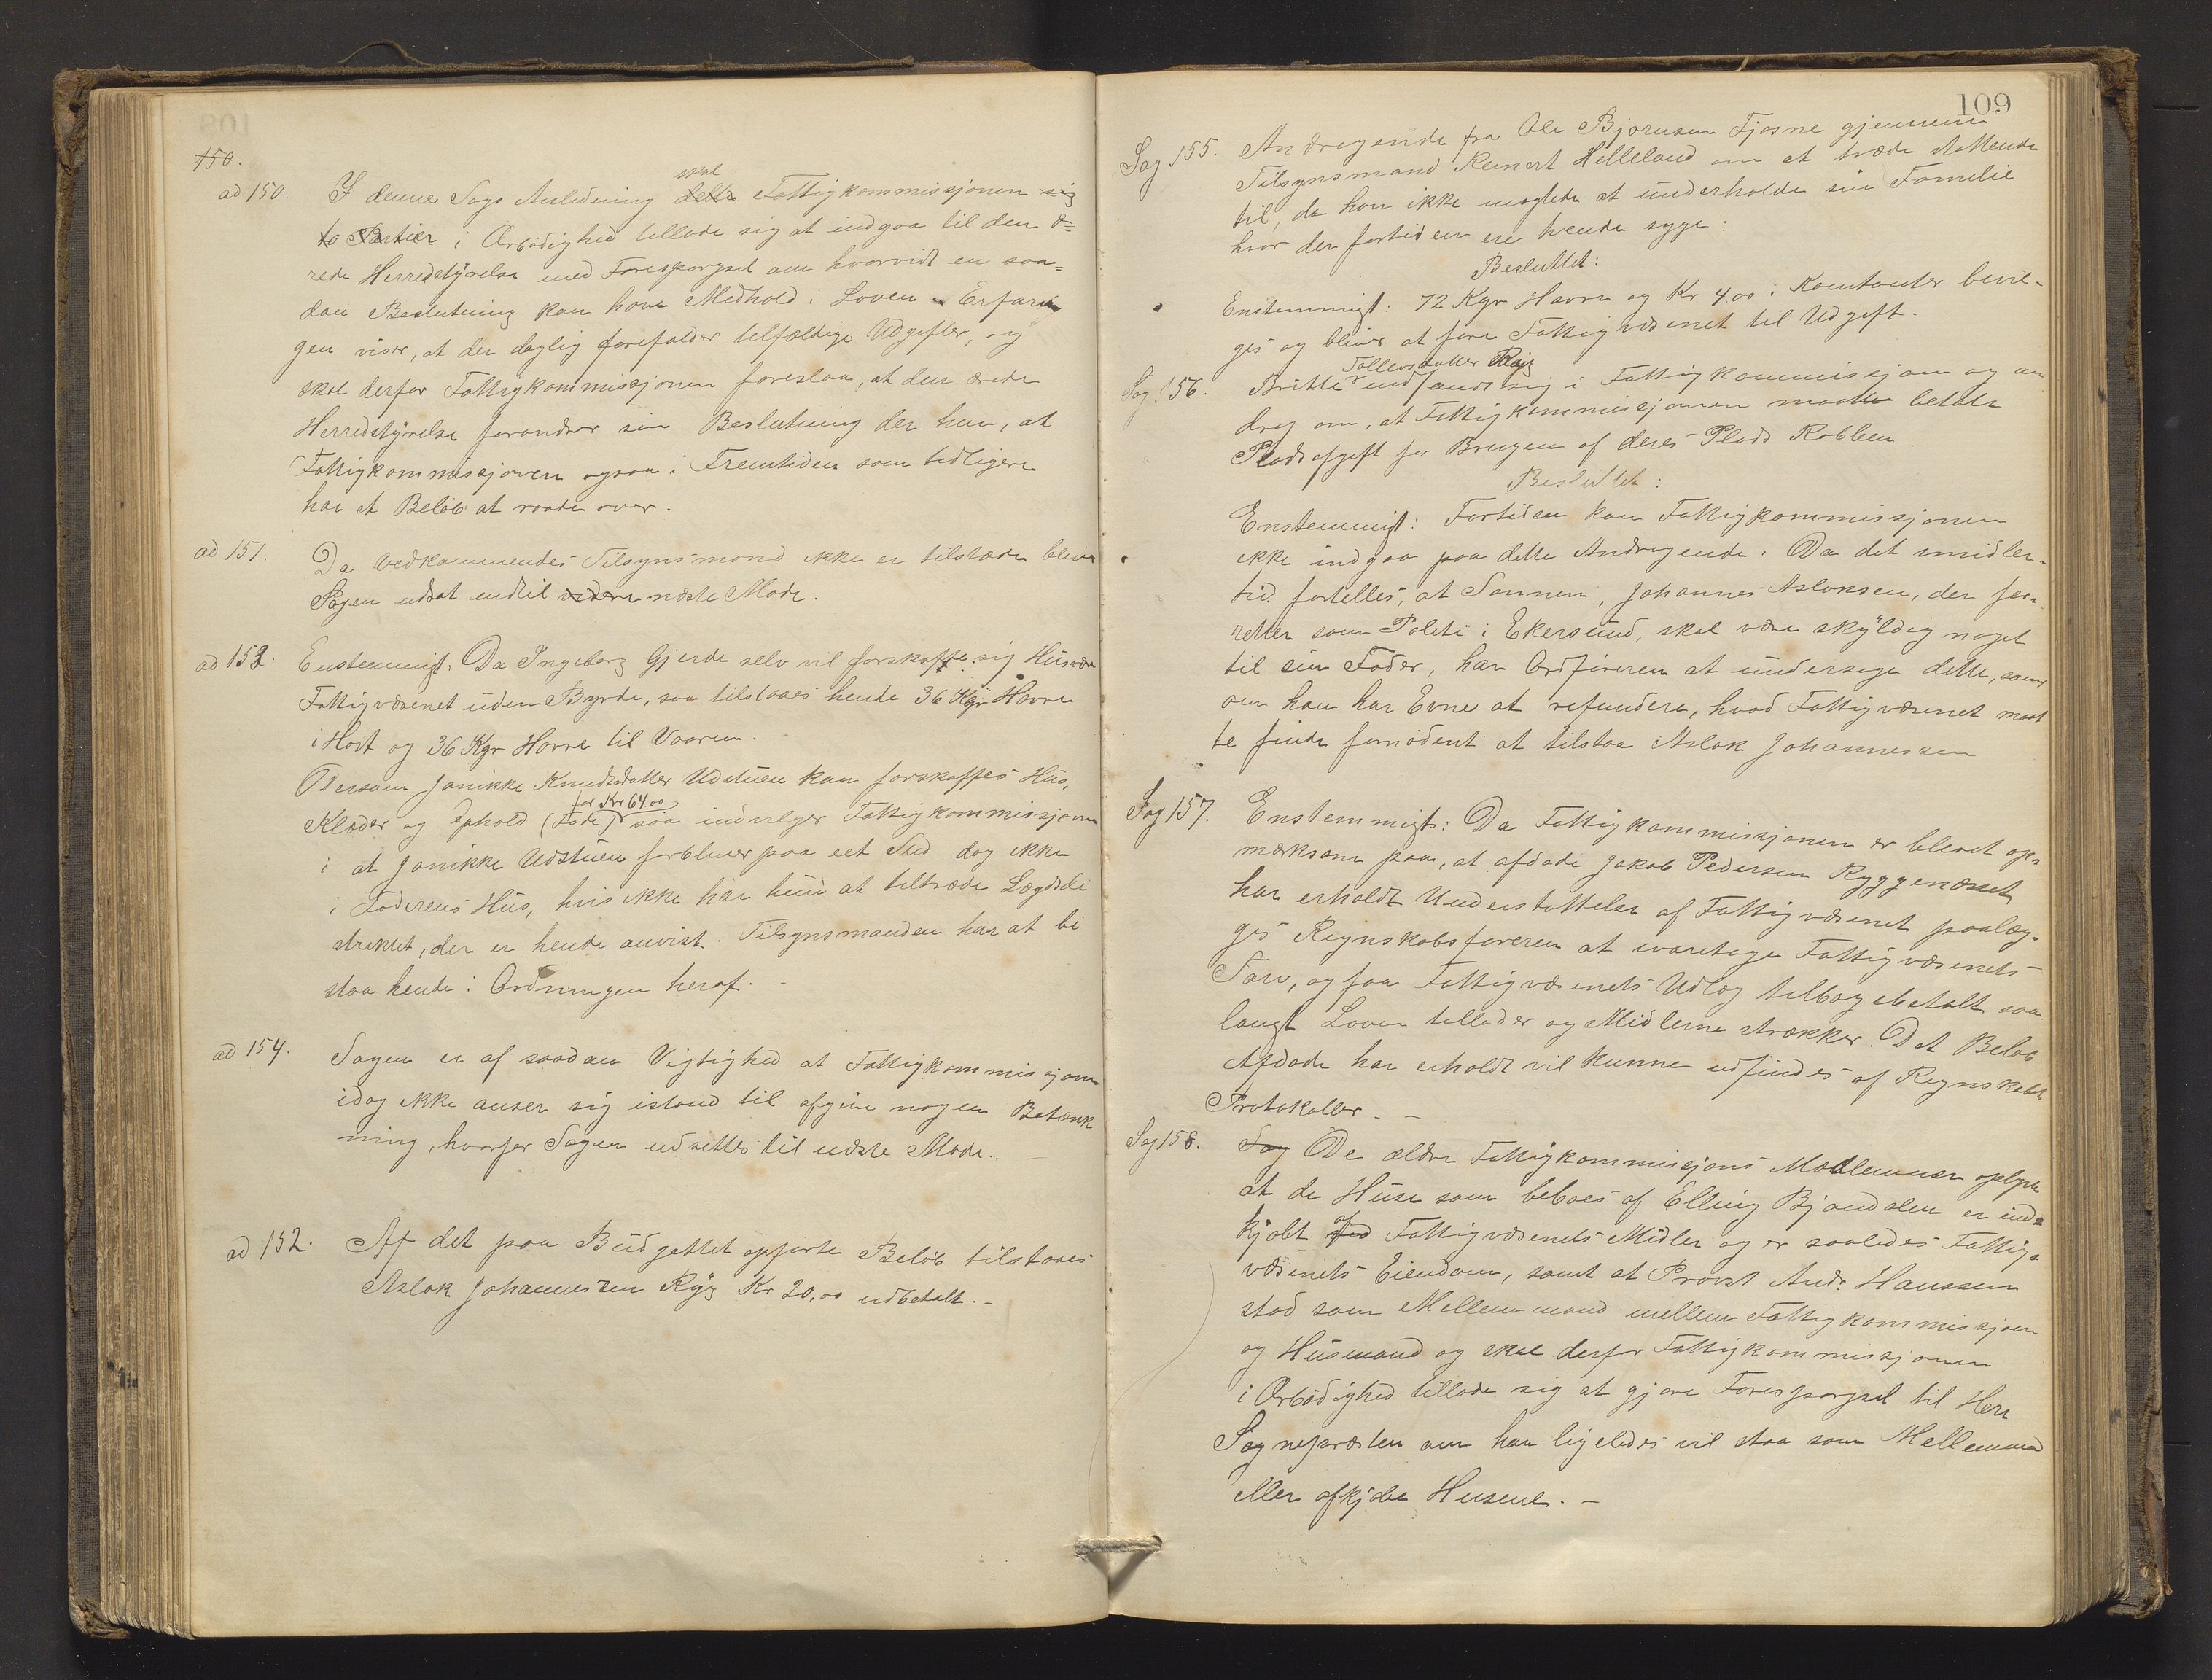 150.
ad 150. I denne Sags Anledning skal delte Fattigkommissjonen sig
to Partier i Ærbødighed tillade sig at indgaa til den æ=
rede Herredstyrelse med Forespørgsel om hvorvidt en saa=
dan Beslutning kan have Medhold i Loven. Erfarin
gen viser, at der daglig forefalder tilfældige Udgifter, og
skal derfor Fattigkommissjonen foreslaa, at den ærede
Herredstyrelse forandrer sin Beslutning der hen, at
Fattigkommissjonen ogsaa i Fremtiden som tidligere
har et Beløb at raade over.
ad 151. Da vedkommendes Tilsynsmand ikke er tilstæde bliver
Sagen udsat indtil videre næste Møde.
ad 153. Enstemmigt: Da Ingeborg Gjerde selv vil forskaffe sig Husvær
Fattigvæsenet uden Byrde, saa tilstaaes hende 36 Kgr Havre
i Høst og 36 Kgr Havre til Vaaren.
Dersom Janikke Knudsdatter Udstuen kan forskaffes Hus,
Klæder og Ophold (Føde) for Kr 64 00 saa indvilger Fattigkommissjonen
i at Janikke Udstuen forbliver paa eet Sted dog ikke
i Faderens Hus, hvis ikke har hun at tiltræde Lægdsdi
striktet, der er hende anvist. Tilsynsmanden har at bi
staa hende i Ordningen heraf. -
ad 154. Sagen er af saadan Vigtighed at Fattigkommissjonen
idag ikke anser sig istand til afgive nogen Betænk
ning, hvorfor Sagen udsættes til næste Møde.. -
ad 152. Af det paa Budgettet opførte Beløb tilstaaes
Aslak Johannessen Ryg Kr 20,00 udbetalt. -
109
Sag 155. Andragende fra Ole Bjørnsen Fjosne gjennem
Tilsynsmand Reinert Helleland om at træde støttende
til, da han ikke mægtede at underholde sin Familie
hvor der fortiden ere tvende syge:
Besluttet:
Enstemmigt: 72 Kgr Havre og Kr 4.00 i Kontanter bevil-
ges og bliver at føre Fattigvæsenet til Udgift.
Sag. 156. Britte Tollevsdatter Ryg indfandt sig i Fattigkommissjonen og an
drog om, at Fattigkommissjonen maatte betale
Pladsafgift for Brugen af deres Plads Robben
Besluttet:
Enstemmigt: Fortiden kan Fattigkommissjonen
ikke indgaa paa dette Andragende. Da det imidler-
tid fortelles, at Sønnen, Johannes Aslaksen, der for-
retter som Politi i Ekersund, skal være skyldig noget
til sin Fader, har Ordføreren at undersøge dette, samt
om han har Evne at refundere, hvad Fattigvæsenet maat
te finde fornødent at tilstaa Aslak Johannessen
Sag 157. Enstemmigt: Da Fattigkommissjonen er blevet op=
mærksom paa, at afdøde Jakob Pedersen Ryggenæsset
har erholdt Understøttelse af Fattigvæsenet paalæg-
ges Regnskabsføreren at ivaretage Fattigvæsenets
Tarv, og faa Fattigvæsenets Udlæg tilbagebetalt saa
langt Loven tillader og Midlerne strækker. Det Beløb
Afdøde har erholdt vil kunne udfindes af Regnskabs
Protokoller. -
Sag 158. Sag De ældre Fattigkommissjons Medlemmer oplyste
at de Huse som beboes af Elling Bjondalen er ind=
kjøbt ved af Fattigvæsenets Midler og er saaledes Fattig=
væsenets Eiendom, samt at Provst Andr. Hanssen
stod som Mellemmand mellem Fattigkommissjonen
og Husmand og skal derfor Fattigkommissjonen
i Ærbødighed tillade sig at gjøre Forespørgsel til Herr
Sognepræsten om han ligeledes vil staa som Mellemmand
eller afkjøbe Husene. -